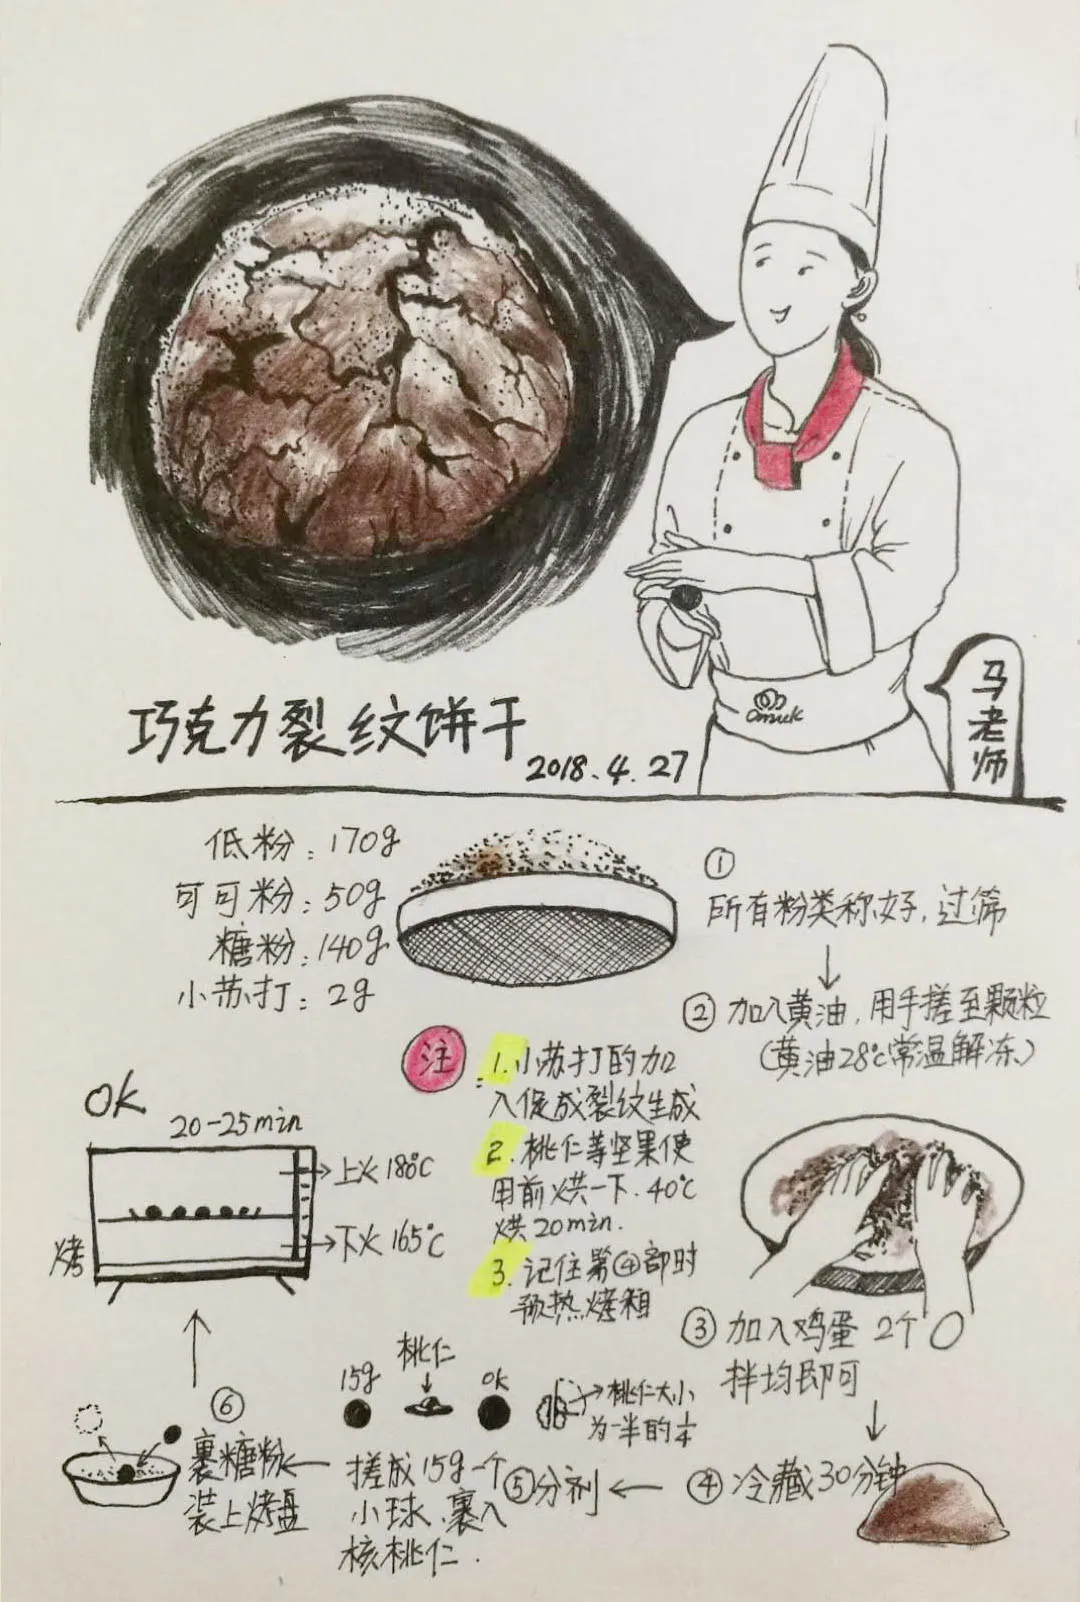 马老师
Omuk
巧克力裂纹饼干
2018.4.27
低粉：170g
可可粉：50g
糖粉：140g
小苏打：2g
①
所有粉类称好，过筛
② 加入黄油，用手搓至颗粒
（黄油28℃常温解冻）
注：
1.小苏打的加
入促成裂纹生成
2.桃仁等坚果使
用前烘一下.40℃
烘20min.
3.记住第④部时
预热烤箱
③ 加入鸡蛋 2个
拌均即可
④ 冷藏30分钟
⑤分剂
15g
桃仁
OK
桃仁大小
为一半的1/4
搓成15g一个
小球、裹入
核桃仁.
⑥
裹糖粉
装上烤盘
烤
OK
20-25min
上火180℃
下火165℃